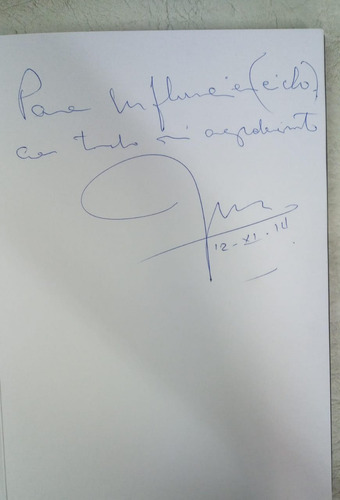 Para Influencia (ciclo),
con todo mi agradecimiento
12-XI-14